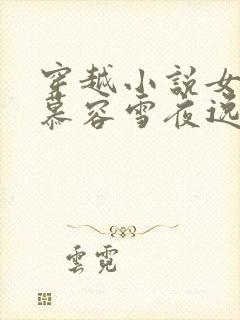 穿越小說女
慕容雪夜逃
雲霓